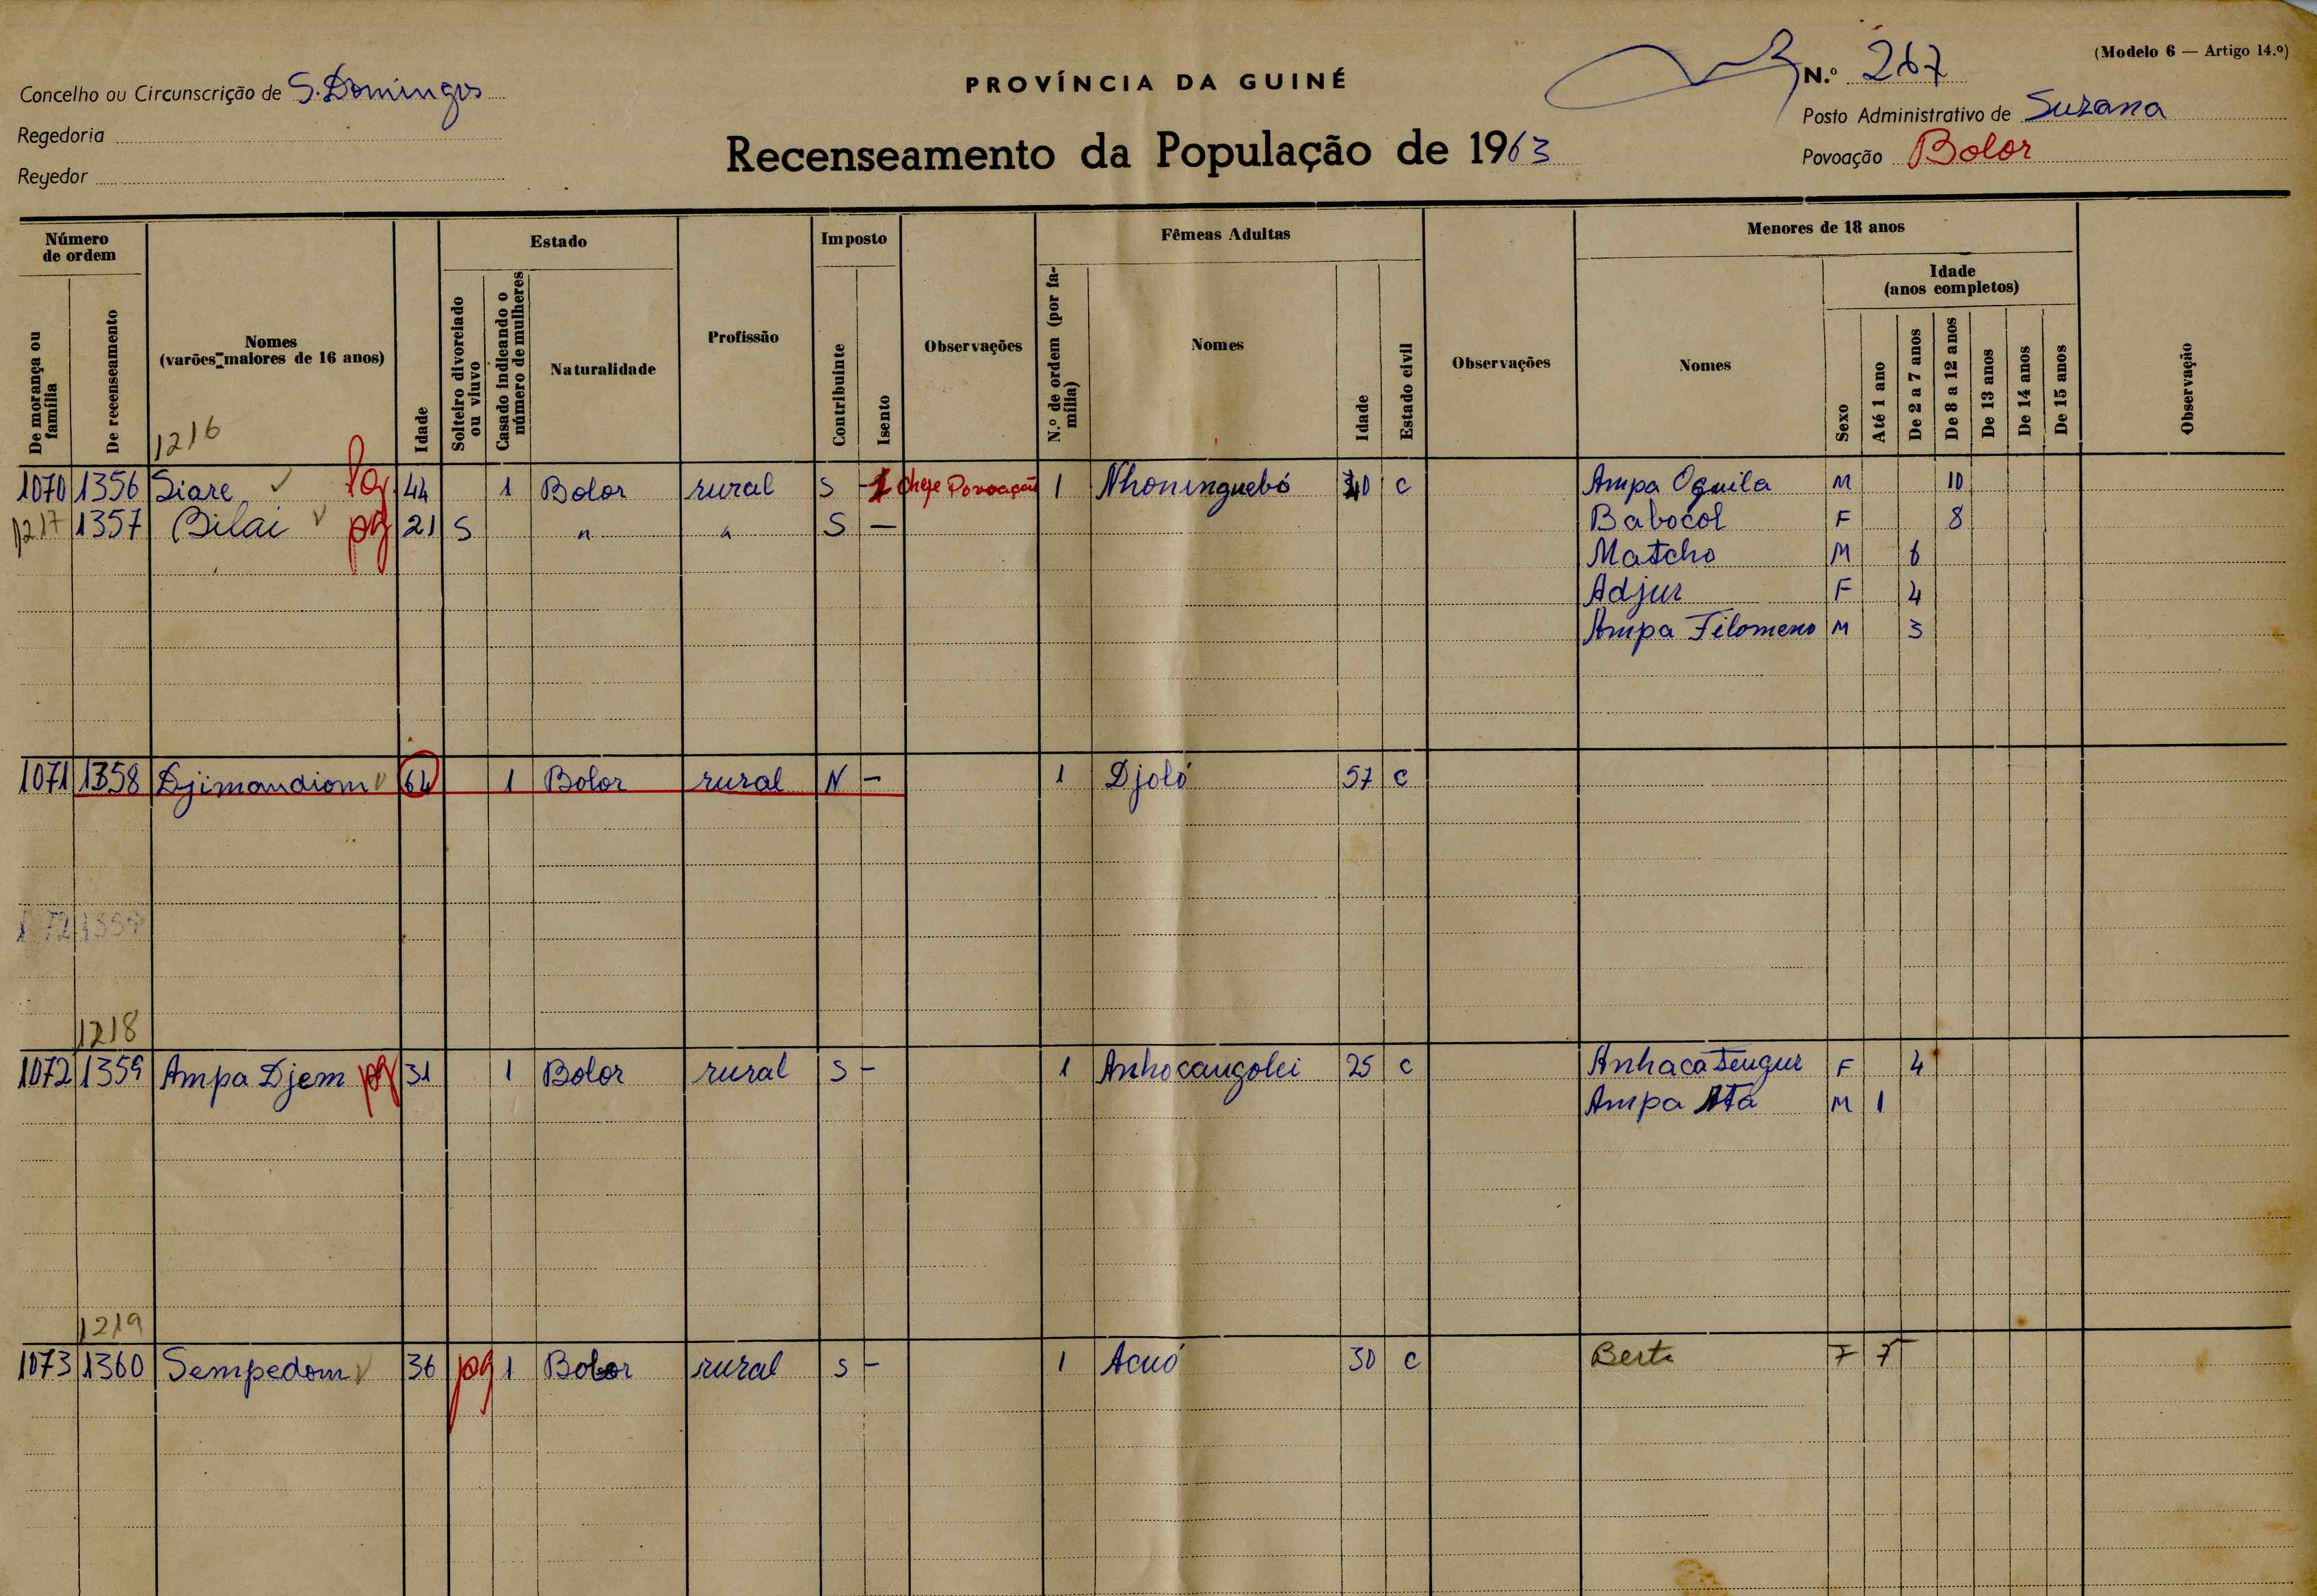 (Modelo 6 — Artigo 14.º)
PROVÍNCIA DA GUINÉ
N.º 267
Concelho ou Circunscrição de S. Domingos
Posto Administrativo de Suzana
Regedoria
Recenseamento da População de 1963
Povoação Bolor
Regedor
Número de ordem
De morança ou família
De recenseamento
Nomes
(varões maiores de 16 anos)
Idade
Estado
Solteiro divorciado ou viuvo
Casado indicando o número de mulheres
Naturalidade
Profissão
Imposto
Contribuinte
Isento
Observações
Fêmeas Adultas
N.º de ordem (por família)
Nomes
Idade
Estado civil
Observações
Menores de 18 anos
Nomes
Sexo
Idade
(anos completos)
Até 1 ano
De 2 a 7 anos
De 8 a 12 anos
De 13 anos
De 14 anos
De 15 anos
Observação
1216
1070 1356 Siare Pg 44 1 Bolor rural S - 1 chefe Povoação 1 Nhoninguebó 40 C Ampa Oquila M 10
1217 1357 Bilai pg 21 S " " S — Babocol F 8
Matcho M 6
Adjur F 4
Ampa Filomeno M 3
1071 1358 Djimandiom 64 1 Bolor rural N - 1 Djoló 57 C
1072 1359
1218
1072 1359 Ampa Djem pg 31 1 Bolor rural S - 1 Anhocangolei 25 C Anhacatengur F 4
Ampa Ata M 1
1219
1073 1360 Sempedom 36 pg 1 Bolor rural S - 1 Acuó 30 C Berta F 7